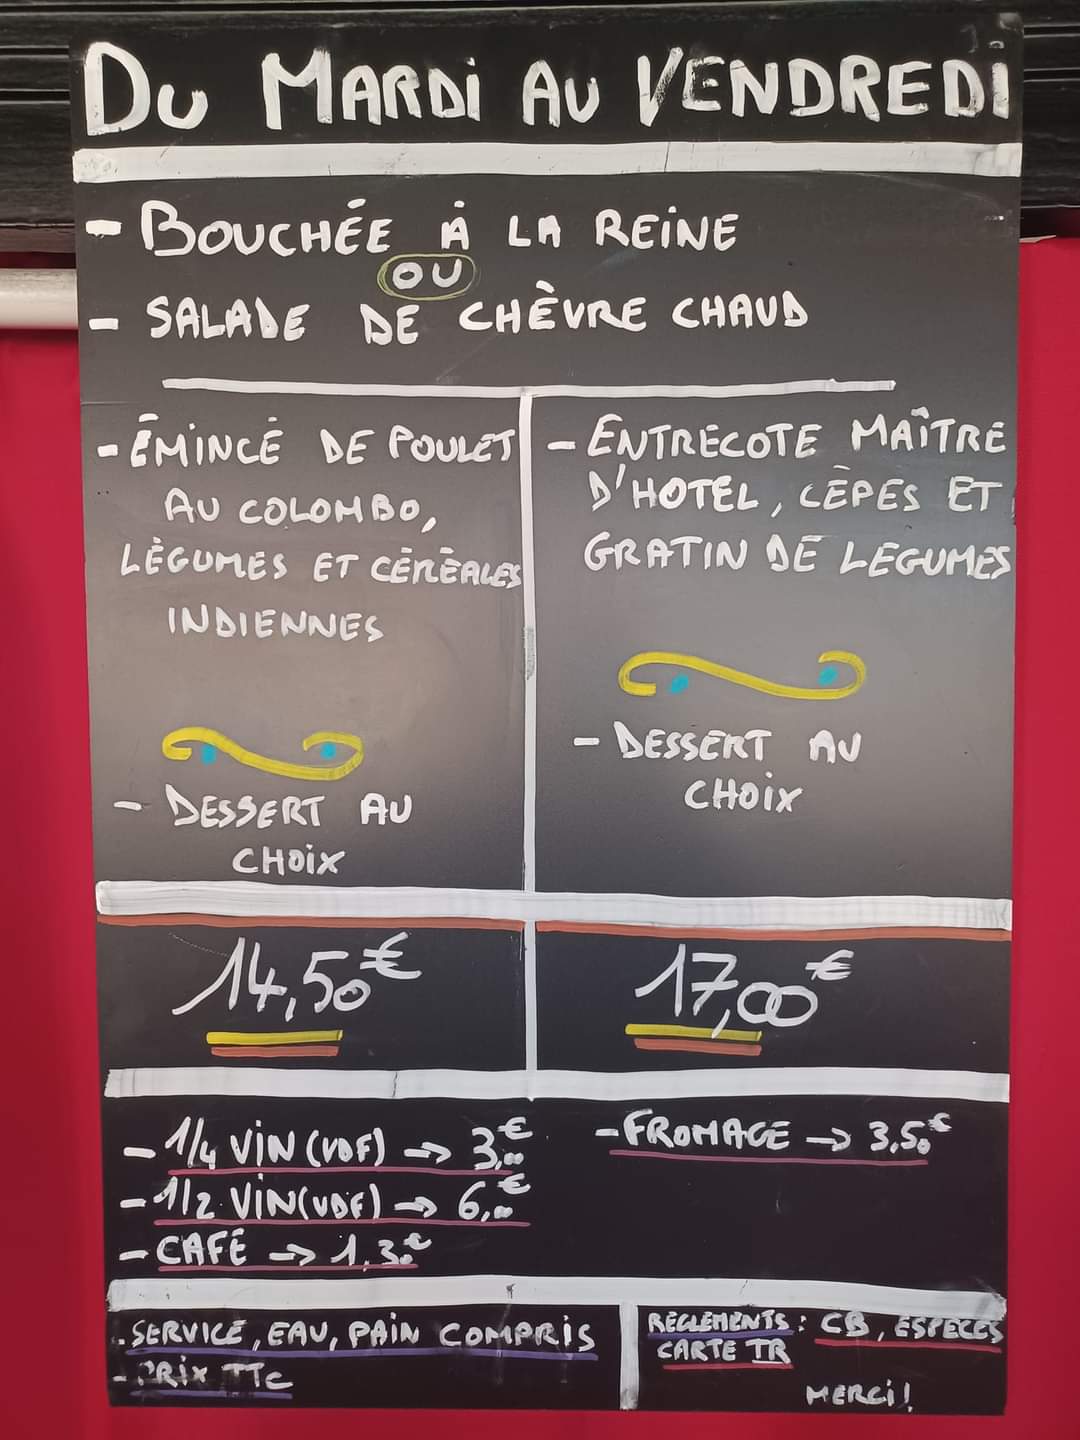 DU MARDI AU VENDREDI
- BOUCHÉE À LA REINE
OU
- SALADE DE CHÈVRE CHAUD
- ÉMINCÉ DE POULET
AU COLOMBO,
LÉGUMES ET CÉRÉALES
INDIENNES
- DESSERT AU
CHOIX
14,50€
- ENTRECOTE MAÎTRE
D'HOTEL, CÈPES ET
GRATIN DE LEGUMES
- DESSERT AU
CHOIX
17,00€
- 1/4 VIN (VDF) → 3,00€
- 1/2 VIN (VDF) → 6,00€
- CAFÉ → 1,30€
- FROMAGE → 3,50€
- SERVICE, EAU, PAIN COMPRIS
- PRIX TTC
RÈGLEMENTS : CB, ESPECES
CARTE TR
MERCI !